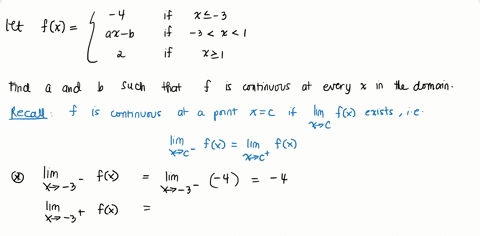 Let f(x) = { -4 if x ≤ -3
ax-b if -3 < x < 1
2 if x ≥ 1
Find a and b such that f is continuous at every x in the domain.
Recall: f is continuous at a point x=c if lim x→c f(x) exists, i.e.
lim x→c⁻ f(x) = lim x→c⁺ f(x)
⊗ lim x→-3⁻ f(x) = lim x→-3⁻ (-4) = -4
lim x→-3⁺ f(x) =